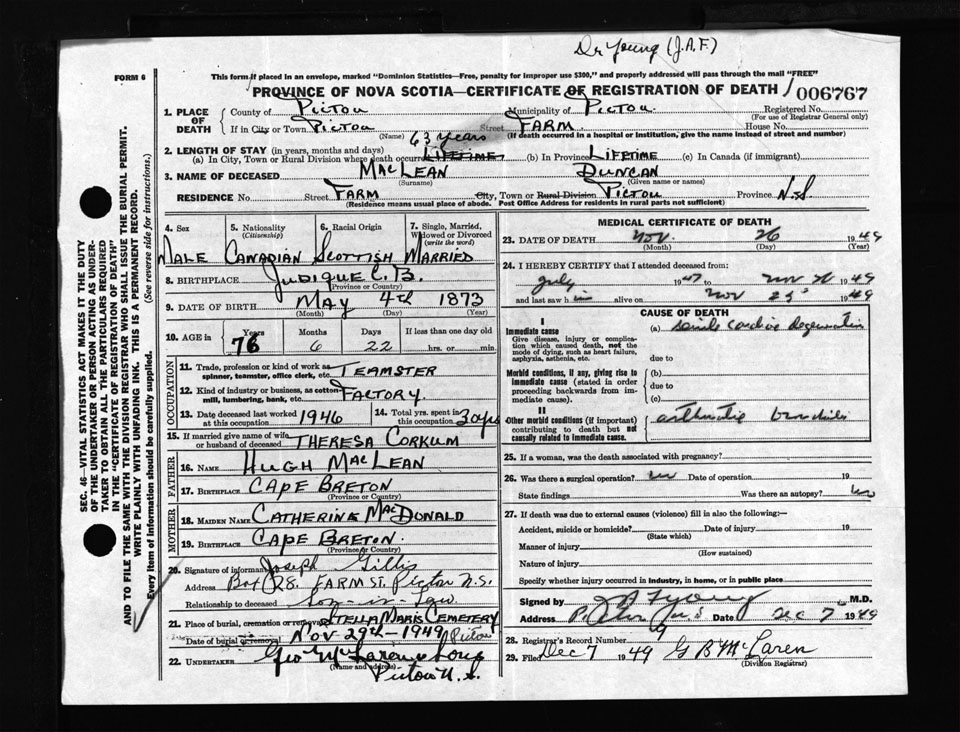 Dr Young (J.A.F.)
FORM 6
This form if placed in an envelope, marked "Dominion Statistics—Free, penalty for improper use $300," and properly addressed will pass through the mail "FREE"
PROVINCE OF NOVA SCOTIA—CERTIFICATE OF REGISTRATION OF DEATH 006767
1. PLACE OF DEATH
County of Pictou Municipality of Pictou Registered No.
(For use of Registrar General only)
If in City or Town Pictou Street FARM House No.
(Name) (If death occurred in a hospital or institution, give the name instead of street and number)
63 years
2. LENGTH OF STAY (in years, months and days)
(a) In City, Town or Rural Division where death occurred LIFETIME (b) In Province LIFETIME (c) In Canada (if immigrant)
3. NAME OF DECEASED MACLEAN DUNCAN
(Surname) (Given name or names)
RESIDENCE No. Street FARM City, Town or Rural Division PICTOU Province N.S
(Residence means usual place of abode. Post Office Address for residents in rural parts not sufficient)
4. Sex 5. Nationality (Citizenship) 6. Racial Origin 7. Single, Married, Widowed or Divorced (write the word)
MALE CANADIAN SCOTTISH MARRIED
8. BIRTHPLACE JUDIQUE C.B.
(Province or Country)
9. DATE OF BIRTH MAY 4th 1873
(Month) (Day) (Year)
10. AGE in Years Months Days If less than one day old
76 6 22 hrs. or min.
OCCUPATION
11. Trade, profession or kind of work as spinner, teamster, office clerk, etc. TEAMSTER
12. Kind of industry or business, as cotton-mill, lumbering, bank, etc. FACTORY.
13. Date deceased last worked at this occupation 1946 14. Total yrs. spent in this occupation 30 yrs
15. If married give name of wife or husband of deceased THERESA CORKUM
FATHER
16. NAME HUGH MACLEAN
17. BIRTHPLACE CAPE BRETON
(Province or Country)
MOTHER
18. MAIDEN NAME CATHERINE MACDONALD
19. BIRTHPLACE CAPE BRETON.
(Province or Country)
20. Signature of informant Joseph Gillis
Address Box 128. FARM ST. Pictou N.S.
Relationship to deceased Son-in-Law
21. Place of burial, cremation or removal STELLA MARIS CEMETERY
Date of burial or removal Nov 29th - 1949 Pictou
22. UNDERTAKER Geo McLaren & Sons
(Name and address)
Pictou N.S.
MEDICAL CERTIFICATE OF DEATH
23. DATE OF DEATH Nov. 26 1949
(Month) (Day) (Year)
24. I HEREBY CERTIFY that I attended deceased from:
July 1947 to Nov 26 1949
and last saw him alive on Nov 25 1949
CAUSE OF DEATH
I
Immediate cause (a) senile cardiac degeneration
Give disease, injury or complication which caused death, not the mode of dying, such as heart failure, asphyxia, asthenia, etc.
due to
Morbid conditions, if any, giving rise to immediate cause (stated in order proceeding backwards from immediate cause).
(b)
due to
(c)
II
Other morbid conditions (if important) contributing to death but not causally related to immediate cause.
asthmatic bronchitis
25. If a woman, was the death associated with pregnancy?
26. Was there a surgical operation? no Date of operation 19
State findings Was there an autopsy? no
27. If death was due to external causes (violence) fill in also the following:—
Accident, suicide or homicide? Date of injury 19
(State which)
Manner of injury
(How sustained)
Nature of injury
Specify whether injury occurred in industry, in home, or in public place
Signed by J A F Young M.D.
Address Pictou N.S Date Dec 7 1949
28. Registrar's Record Number 9
29. Filed Dec 7 1949 G B McLaren
(Division Registrar)
SEC. 46—VITAL STATISTICS ACT MAKES IT THE DUTY
OF THE UNDERTAKER OR PERSON ACTING AS UNDER-
TAKER TO OBTAIN ALL THE PARTICULARS REQUIRED
IN THE "CERTIFICATE OF REGISTRATION OF DEATH"
AND TO FILE THE SAME WITH THE DIVISION REGISTRAR WHO SHALL ISSUE THE BURIAL PERMIT.
WRITE PLAINLY WITH UNFADING INK. THIS IS A PERMANENT RECORD.
Every item of information should be carefully supplied. (See reverse side for instructions.)